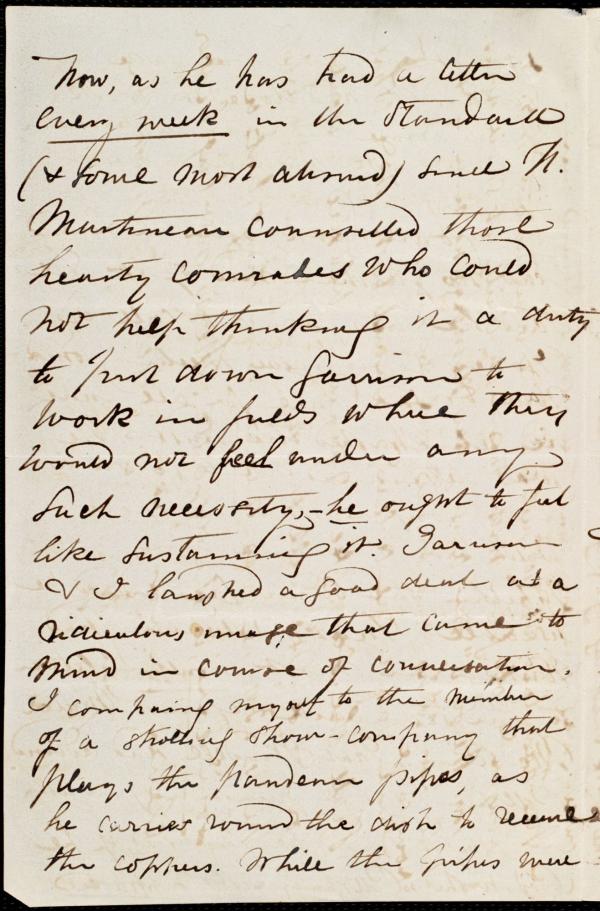 Now, as he has had a letter
every week in the Standard
(& some most absurd) since H.
Martineau counselled those
hearty comrades who could
not help thinking it a duty
to put down Garrison to
work in fields where they
would not feel under any
such necessity,—he ought to feel
like sustaining it. Garrison
& I laughed a good deal at a
ridiculous image that came to
mind in course of conversation.
I comparing myself to the member
of a strolling show-company that
plays the pandean pipes, as
he carries round the dish to receive
the coppers. While the pipes were